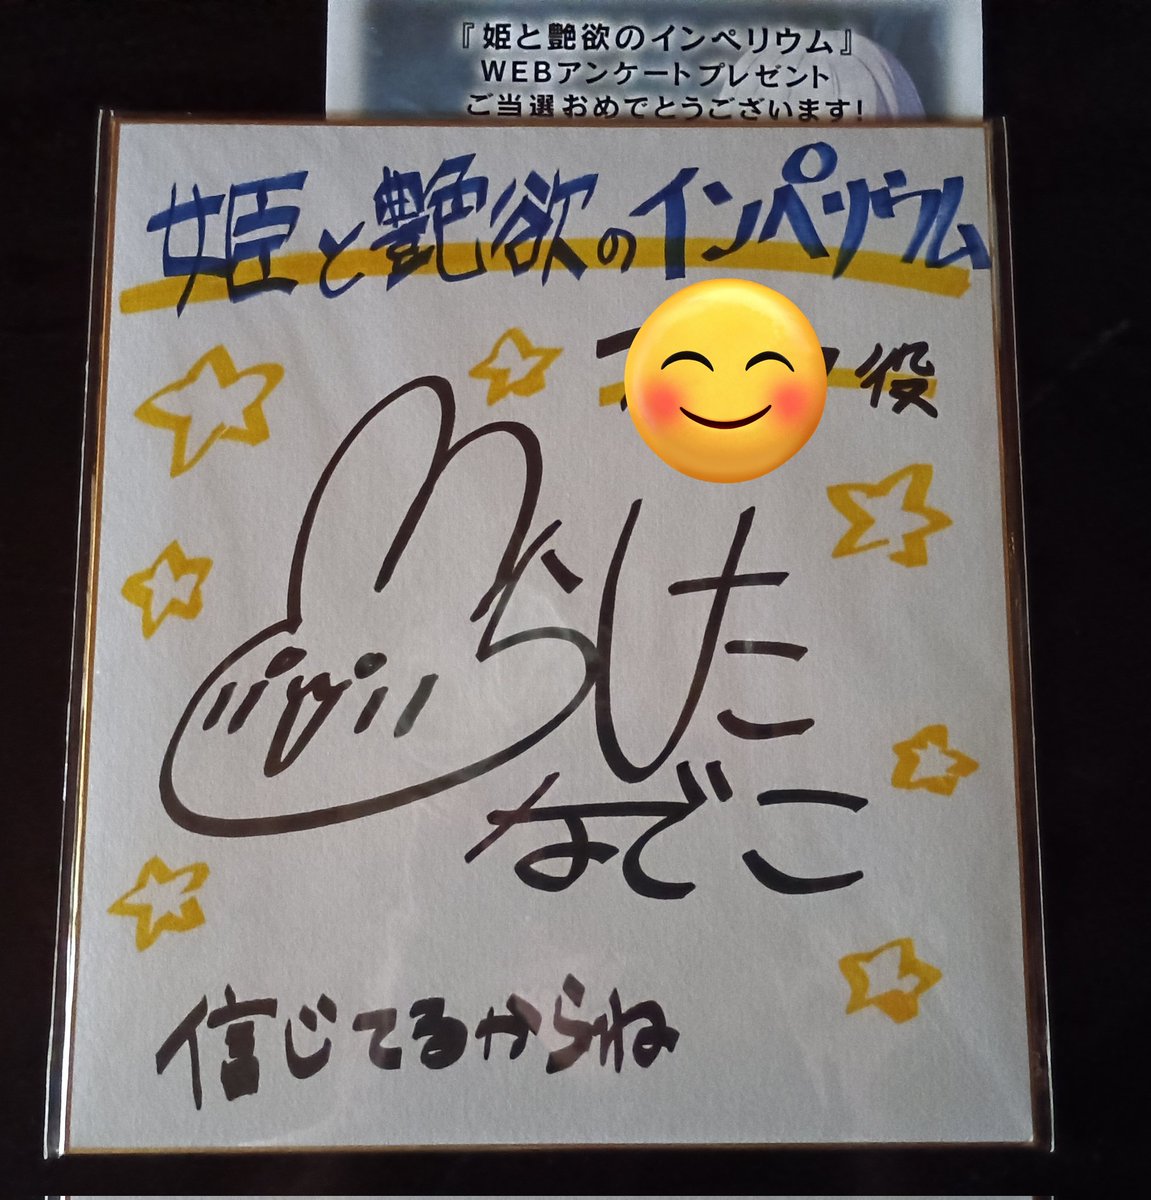 『姫と艶欲のインペリウム』
WEBアンケートプレゼント
ご当選おめでとうございます!
姫と艶欲のインペリウム
役
くらした
なでこ
信じてるからね